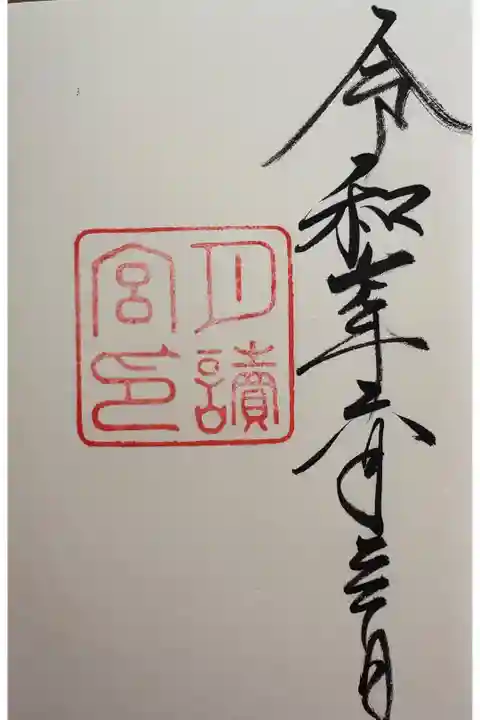 令和七年六月二三日
月讀
宮印